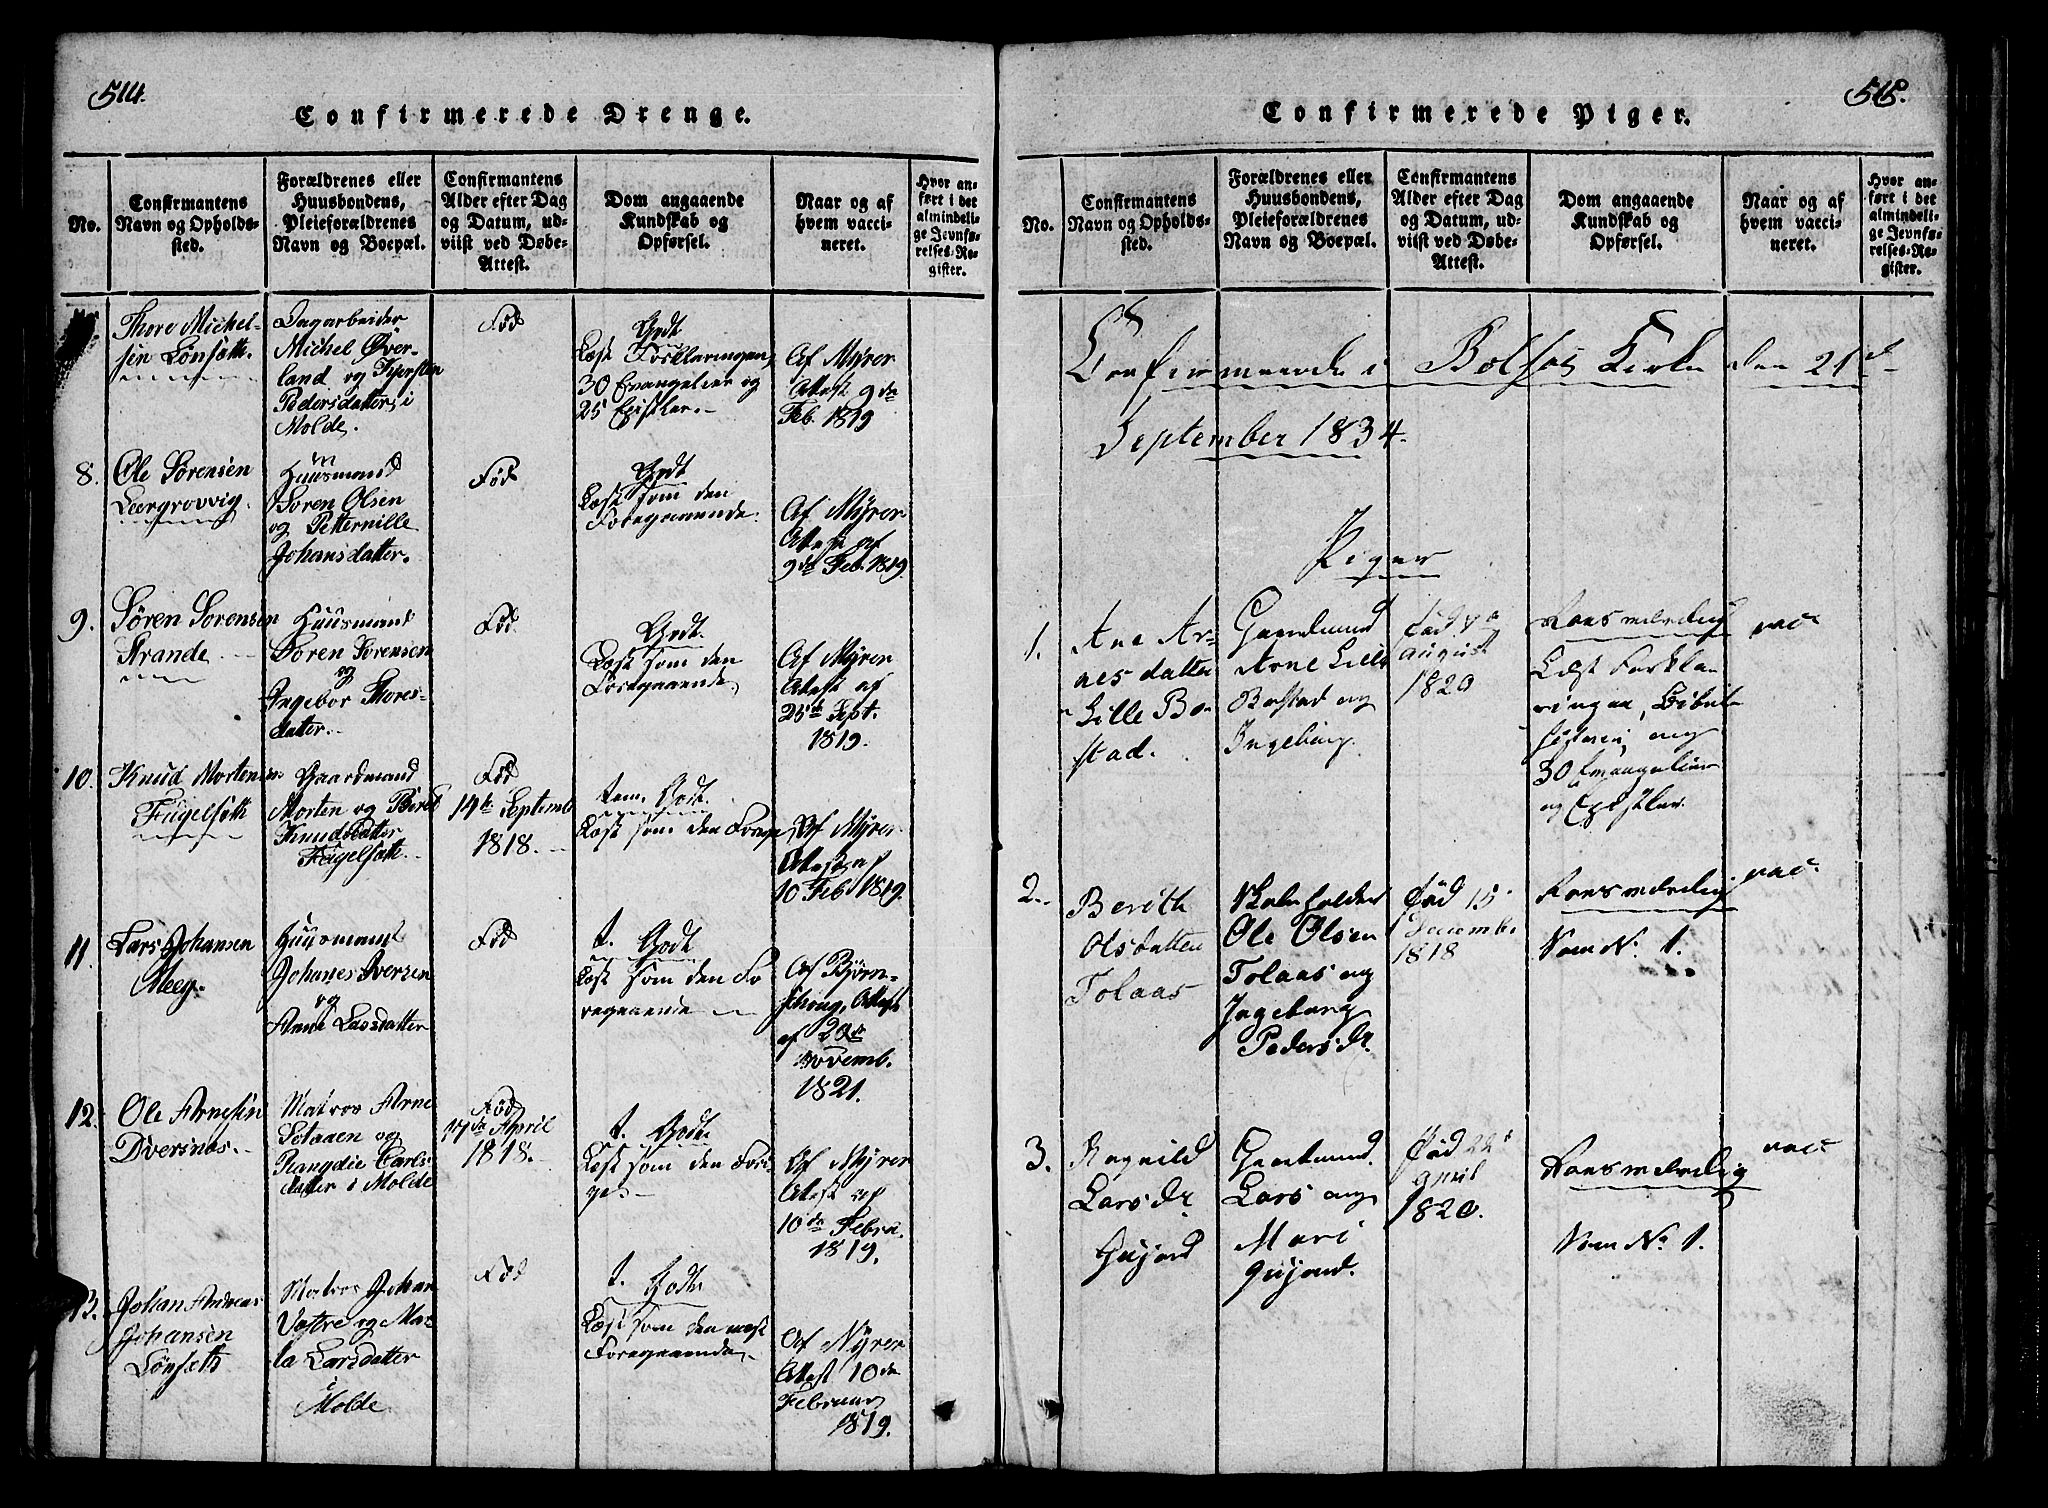 514.
Confirmerede Drenge.
No.
Confirmantens
Navn og Opholds-
sted.
Forældrenes eller
Huusbondens,
Pleieforældrenes
Navn og Boepæl.
Confirmantens
Alder efter Dag
og Datum, ud-
viist ved Døbe-
Attest.
Dom angaaende
Kundskab og
Opførsel.
Naar og af
hvem vacci-
neret.
Hvor an-
ført i det
almindeli-
ge Jevnfø-
relses-Re-
gister.
Thore Michel-
sen Lønsæth.
Dagarbeider
Michel Øver-
land og Kjersten
Pedersdatter i
Molde.
Fød
Godt
Læst Forklaringen,
30 Evangelier og
25 Epistler.
Af Myrer
Attest 9de
Feb. 1819
8.
Ole Sørensen
Leergrovvig.
Huusmand
Søren Olsen
og Petternille
Johansdatter.
Fød
Godt
Læst som den
Foregaaende.
Af Myrer
Attest af
9de Feb. 1819.
9.
Søren Sorensen
Strande
Huusmand
Søren Sørensen
og
Ingebor Thores-
datter.
Fød.
Godt.
Læst som den
Foregaaende.
Af Myrer
Attest af
25de Sept.
1819.
10.
Knud Mortensen
Fugelsæth
Gaardmand
Morten og Berit
Knudsdatter
Fugelsæth.
Fød
14de Septemb
1818.
tem. Godt.
Læst som den Forige
Af Myrer
Attest af
10 Feb 1819.
11.
Lars Johansen
Meeg.
Huusmand
Johanes Iversen
og
Anne Larsdatter
Fød
t. Godt
Læst som den Fo
regaaende
Af Bjørn-
Attest
af 29de
Novemb.
1821.
12.
Ole Arnesen
Dversnæs.
Matros Arne
og
Rangdie Carls-
datter i Molde
Fød
17de April
1818.
t. Godt.
Læst som den Fori
ge.
Af Myrer
Attest af
10de Febru.
1819.
13.
Johan Andreas
Johansen
Lønsæth
Matros Johan
Vestre og Mar
ta Larsdatter
i
Molde
Fød
t. Godt
Læst som den næst
Foregaaende
Af Myrer
Attest 10de
Februar
1819.
515.
Confirmerede Piger.
No.
Confirmantens
Navn og Opholds-
sted.
Forældrenes eller
Huusbondens,
Pleieforældrenes
Navn og Boepæl.
Confirmantens
Alder efter Dag
og Datum, ud-
viist ved Døbe-
Attest.
Dom angaaende
Kundskab og
Opførsel.
Naar og af
hvem vacci-
neret.
Hvor an-
ført i det
almindeli-
ge Jevnfø-
relses-Re-
gister.
Confirmerede i Bolsøe Kirke den 21de
September 1834.
Piger
1.
Ane Ar-
nesdatter
Lille Bo-
stad.
Gaardmand
Arne Lille
Bostad og
Ingeborg.
fød
august
1820
Roesværdig
Læst Forkla
ringen, Bibel
historie, og
30 Evangelier
og Epistler.
vac
2.
Berith
Olsdatter
Tolaas
Ole Olsen
Tolaas og
Ingeborg
Pedersdr.
Fød 15
Decembr
1818
Roesværdig
Som No. 1.
vac.
3.
Ragnild
Larsdr
Gujord
Gaardmand
Lars og
Mari
Gujord.
Fød 22de
april
1820.
Roesværdig
Som No. 1.
vac